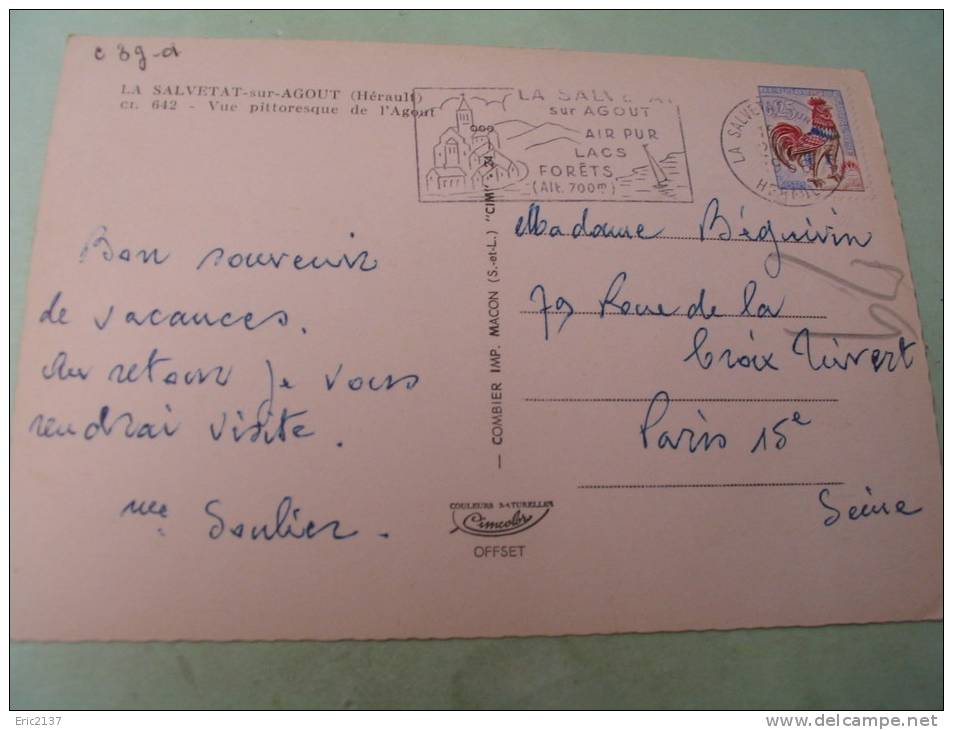 c 39-d
LA SALVETAT-sur-AGOUT (Hérault)
CT. 642 - Vue pittoresque de l'Agout
LA SALVETA
sur AGOUT
AIR PUR
LACS
FORÊTS
(Alt. 700m)
LA SALVETAT
Bon souvenir
de vacances.
Au retour je vous
rendrai visite.
Mme Soulier.
— COMBIER IMP. MACON (S.-et-L.) "CIM"
Madame Béguivin
79 Rue de la
Croix Nivert
Paris 15e
Seine
COULEURS NATURELLES
Cimcolor
OFFSET
Eric2137
www.delcampe.net